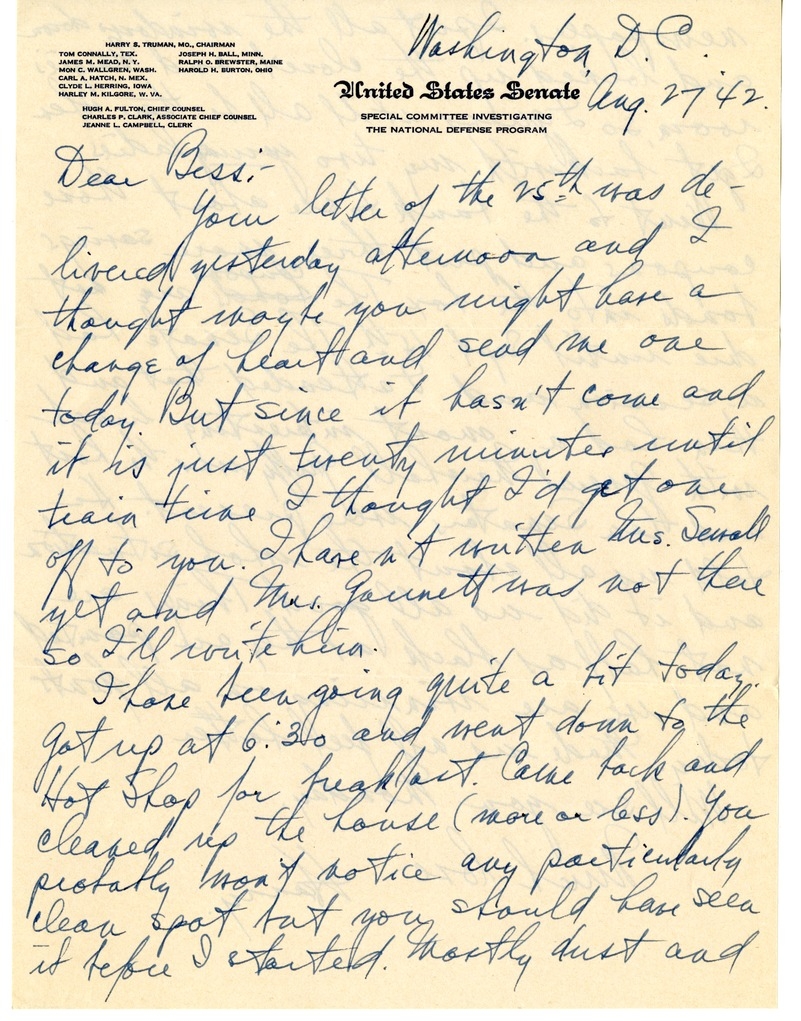 HARRY S. TRUMAN, MO., CHAIRMAN
TOM CONNALLY, TEX. JOSEPH H. BALL, MINN.
JAMES M. MEAD, N. Y. RALPH O. BREWSTER, MAINE
MON C. WALLGREN, WASH. HAROLD H. BURTON, OHIO
CARL A. HATCH, N. MEX.
CLYDE L. HERRING, IOWA
HARLEY M. KILGORE, W. VA.
HUGH A. FULTON, CHIEF COUNSEL
CHARLES P. CLARK, ASSOCIATE CHIEF COUNSEL
JEANNE L. CAMPBELL, CLERK
United States Senate
SPECIAL COMMITTEE INVESTIGATING
THE NATIONAL DEFENSE PROGRAM
Washington, D.C.
Aug. 27 '42.
Dear Bess:-
Your letter of the 25th was de-
livered yesterday afternoon and I
thought maybe you might have a
change of heart and send me one
today. But since it hasn't come and
it is just twenty minutes until
train time I thought I'd get one
off to you. I haven't written Mrs. Sewall
yet and Mr. Gannett was not there
so I'll write him.
I have been going quite a bit today.
Got up at 6:30 and went down to the
Hot Shop for breakfast. Came back and
cleaned up the house (more or less). You
probably won't notice any particularly
clean spot but you should have seen
it before I started. Mostly dust and